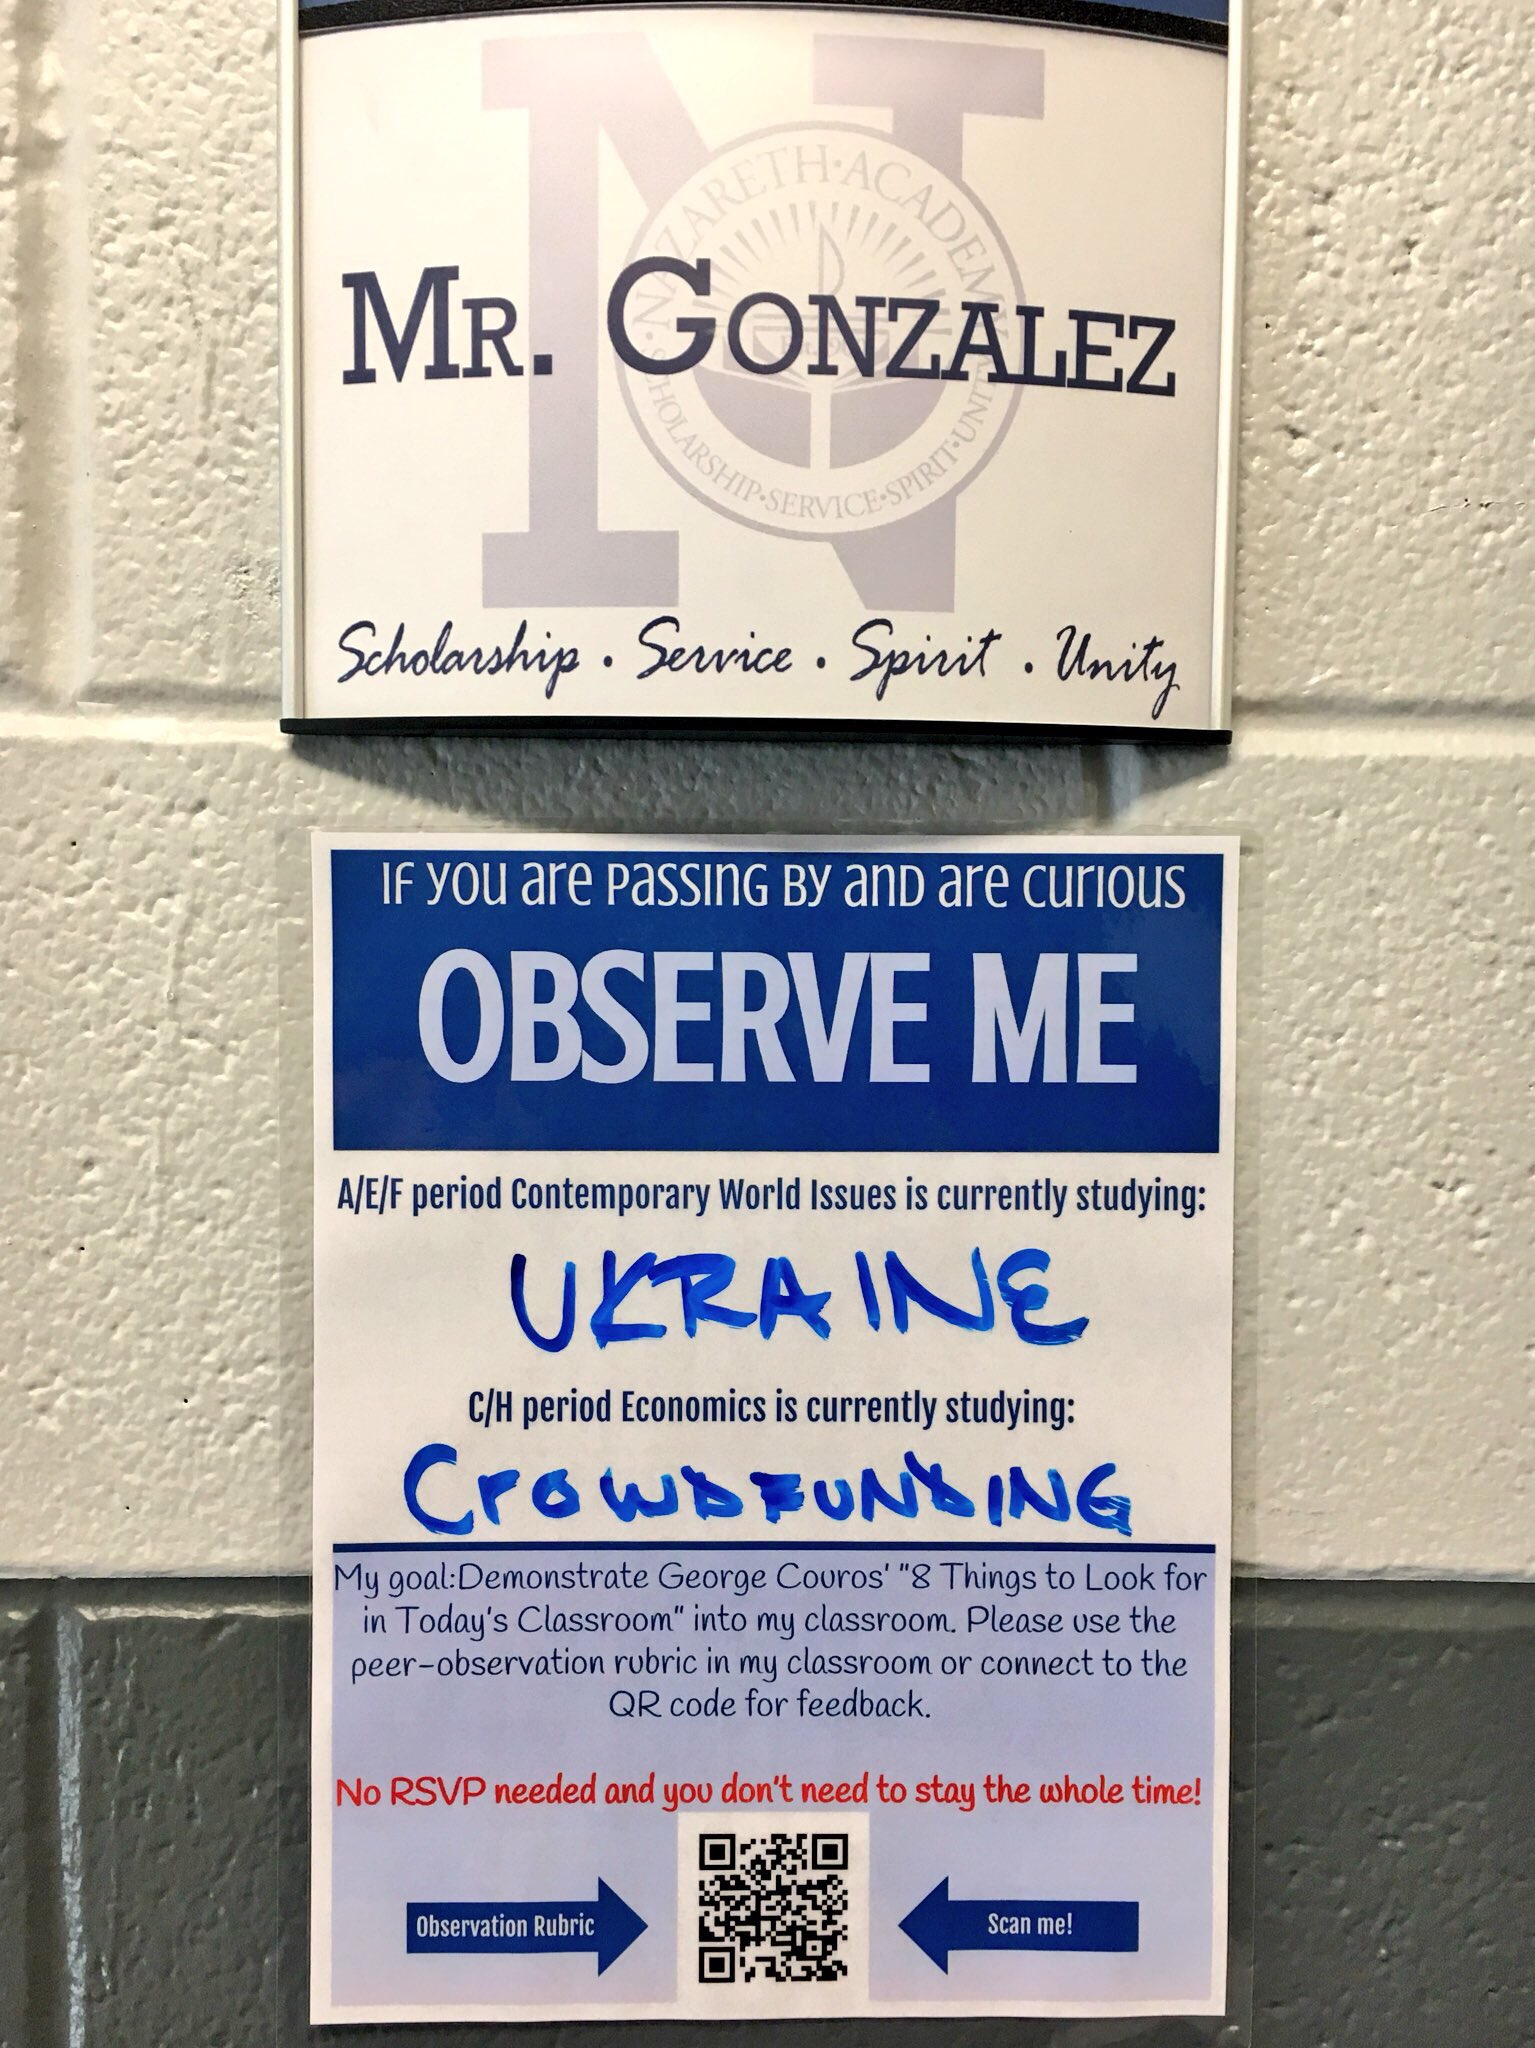 NAZARETH·ACADEMY
SCHOLARSHIP·SERVICE·SPIRIT·UNITY
MR. GONZALEZ
Scholarship · Service · Spirit · Unity
IF you are PASSING BY and are CURIOUS
OBSERVE ME
A/E/F period Contemporary World Issues is currently studying:
UKRAINE
C/H period Economics is currently studying:
CROWDFUNDING
My goal:Demonstrate George Couros' "8 Things to Look for
in Today's Classroom" into my classroom. Please use the
peer-observation rubric in my classroom or connect to the
QR code for feedback.
No RSVP needed and you don't need to stay the whole time!
Observation Rubric
Scan me!